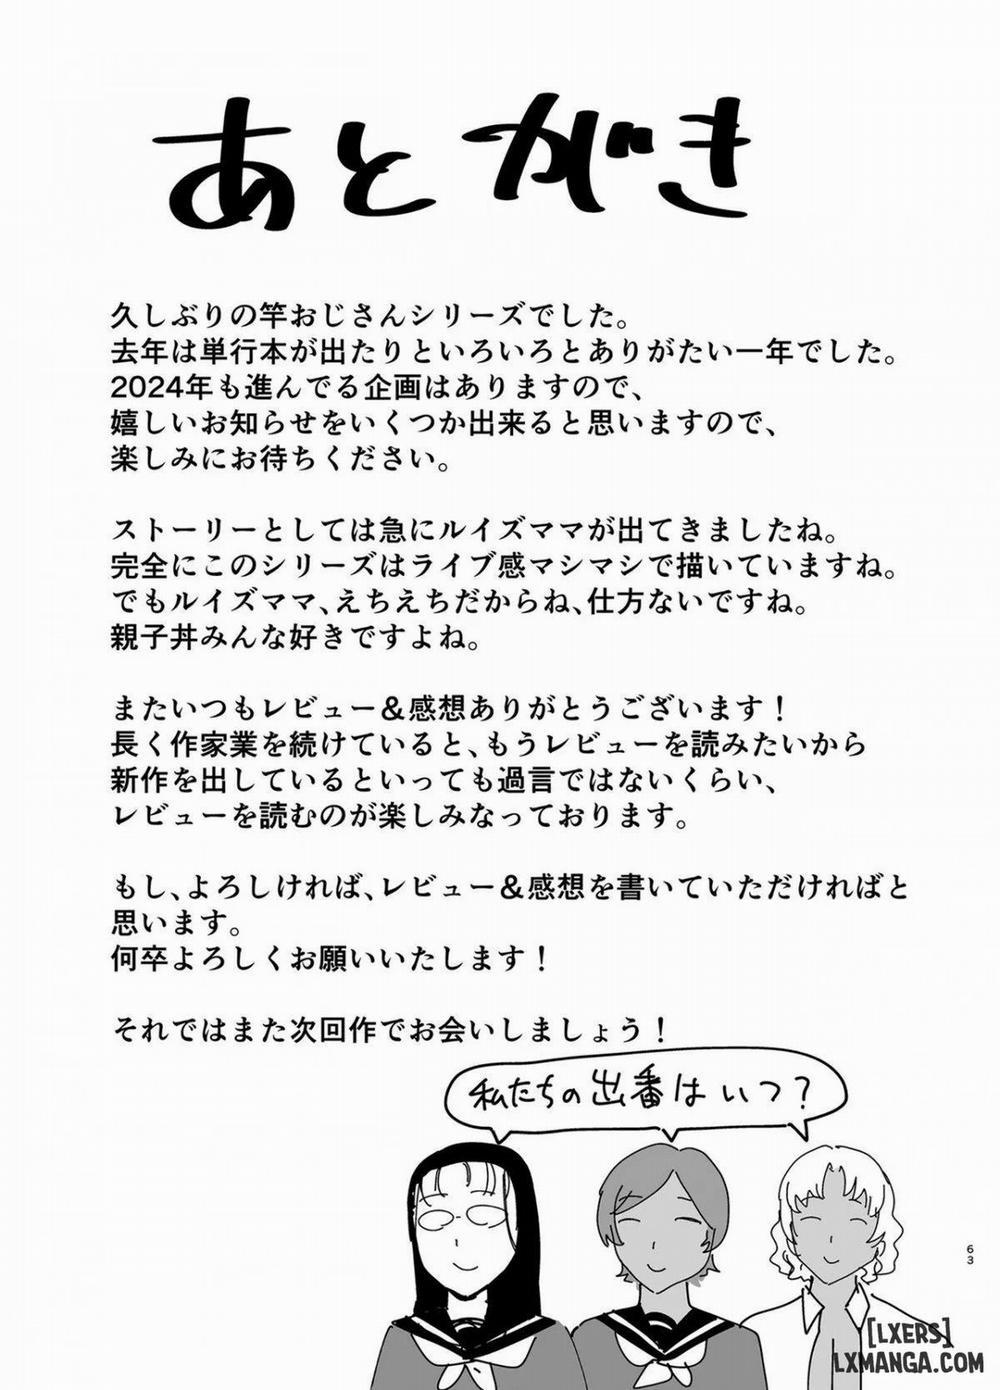 あとがき
久しぶりの竿おじさんシリーズでした。
去年は単行本が出たりといろいろとありがたい一年でした。
2024年も進んでる企画はありますので、
嬉しいお知らせをいくつか出来ると思いますので、
楽しみにお待ちください。
ストーリーとしては急にルイズママが出てきましたね。
完全にこのシリーズはライブ感マシマシで描いていますね。
でもルイズママ、えちえちだからね、仕方ないですね。
親子丼みんな好きですよね。
またいつもレビュー＆感想ありがとうございます！
長く作家業を続けていると、もうレビューを読みたいから
新作を出しているといっても過言ではないくらい、
レビューを読むのが楽しみなっております。
もし、よろしければ、レビュー＆感想を書いていただければと
思います。
何卒よろしくお願いいたします！
それではまた次回作でお会いしましょう！
私たちの出番はいつ？
63
[LXERS]
LXMANGA.COM